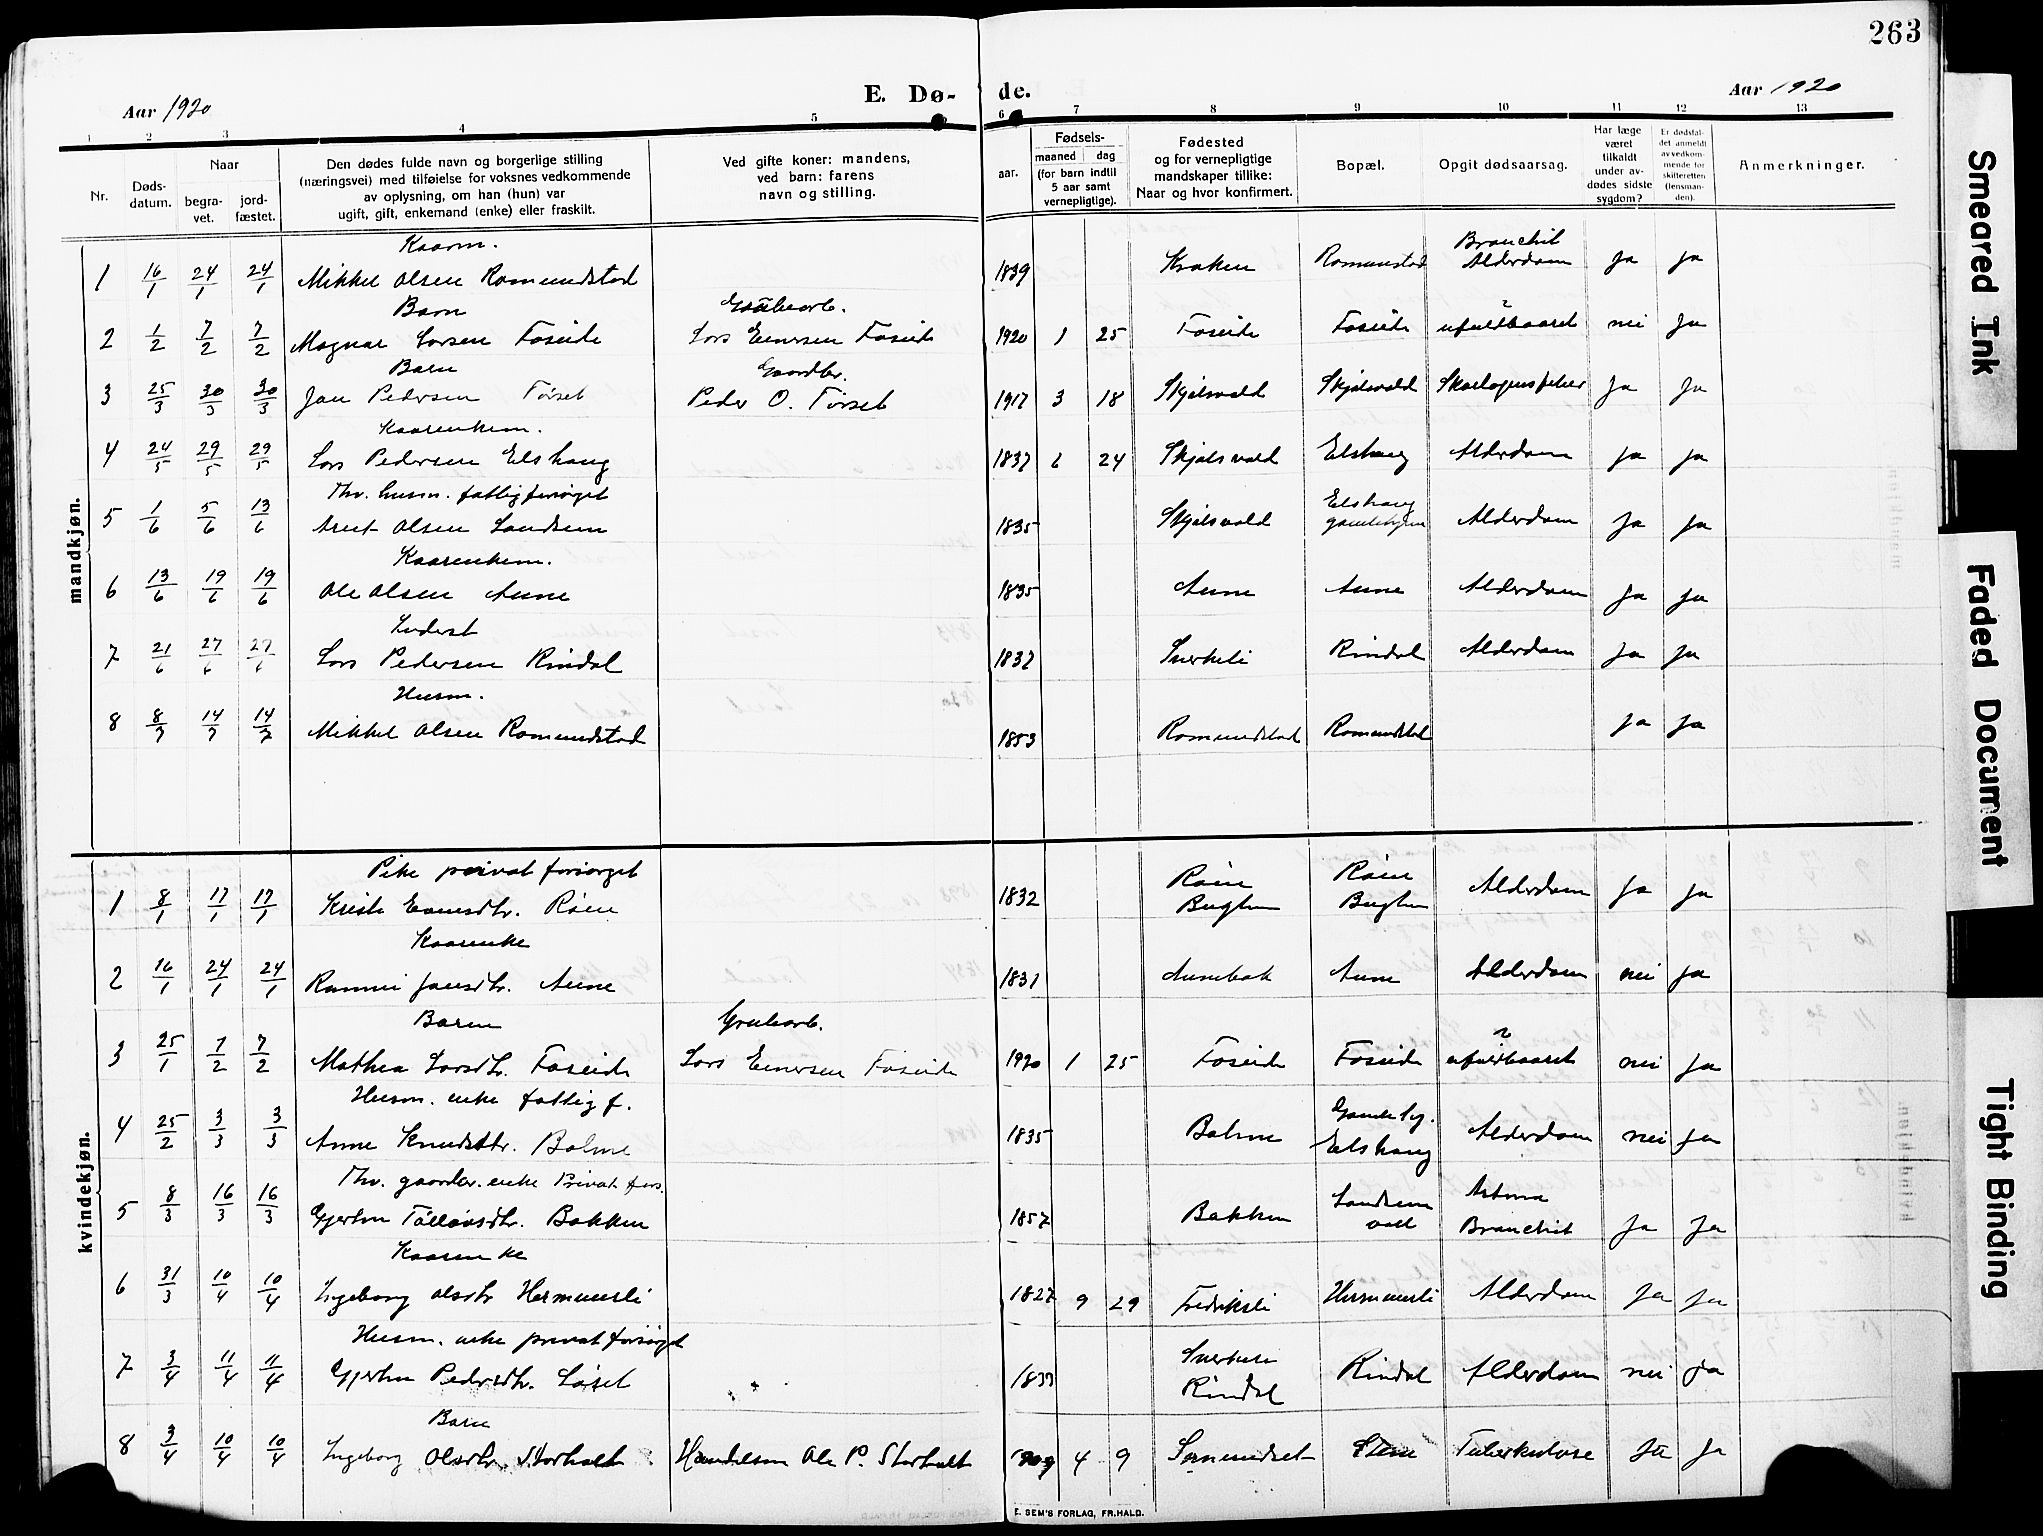 263
Aar 1920
E. Dø- de.
Aar 1920
1 2 3 4 5 6 7 8 9 10 11 12 13
Nr.
Døds-
datum.
Naar
begra-
vet.
jord-
fæstet.
Den dødes fulde navn og borgerlige stilling
(næringsvei) med tilføielse for voksnes vedkommende
av oplysning, om han (hun) var
ugift, gift, enkemand (enke) eller fraskilt.
Ved gifte koner: mandens,
ved barn: farens
navn og stilling.
Fødsels-
aar.
maaned dag
(for barn indtil
5 aar samt
vernepligtige).
Fødested
og for vernepligtige
mandskaper tillike:
Naar og hvor konfirmert.
Bopæl.
Opgit dødsaarsag.
Har læge
været
tilkaldt
under av-
dødes sidste
sygdom?
Er dødsfal-
det anmeldt
av vedkom-
mende for
skifteretten
(lensman-
den).
Anmerkninger.
mandkjøn.
Kaarm.
Bronchit
1 16/1 24/1 24/1 Mikkel Olsen Romundstad 1839 Kraken Romunstad Alderdom Ja Ja
Barn Grubearb.
2 1/2 7/2 7/2 Magnar Larsen Foseide Lars Einersen Foseide 1920 1 25 Foseide Foseide ufuldbaaret nei Ja
Barn Gaardbr.
3 25/3 30/3 30/3 Jon Pedersen Torset Peder O. Torset 1917 3 18 Skjølsvold Skjølsvold Skarlagensfeber Ja Ja
Kaarenkem.
4 24/5 29/5 29/5 Lars Pedersen Elshaug 1837 6 24 Skjølsvold Elshaug Alderdom Ja Ja
Fhv. husm. fattigforsørget
Elshaug
5 1/6 5/6 13/6 Arnt Olsen Landsem 1835 Skjølsvold gamlehjem Alderdom Ja Ja
Kaarenkem.
6 13/6 19/6 19/6 Ole Olsen Aune 1835 Aune Aune Alderdom Ja Ja
Inderst
7 21/6 27/6 27/6 Lars Pedersen Rindal 1832 Snerkeli Rindal Alderdom Ja Ja
Husm.
8 8/7 14/7 14/7 Mikkel Olsen Romundstad 1853 Romundstad Romundstad Ja Ja
kvindekjøn.
Pike privat forsørget Røen Røen
1 8/1 17/1 17/1 Kristi Evensdtr. Røen 1832 Bugten Bugten Alderdom Ja Ja
Kaarenke
2 16/1 24/1 24/1 Ronnei Jonsdtr. Aune 1831 Aunebak Aune Alderdom nei Ja
Barn Grubearb.
3 25/1 7/2 7/2 Mathea Larsdtr. Foseide Lars Einersen Foseide 1920 1 25 Foseide Foseide ufuldbaaret nei Ja
Husm. enke fattig f. Gamlehj.
4 25/2 3/3 3/3 Anne Knudsdtr. Bolme 1835 Bolme Elshaug Alderdom nei Ja
Fhv. gaardbr. enke Privat fors. Landsem Astma
5 8/3 16/3 16/3 Gjertru Tølløvsdtr. Bakken 1857 Bakken vald Bronchit Ja Ja
Kaarenke
6 31/3 10/4 10/4 Ingeborg Olsdtr Hermunsli 1827 9 29 Fredriksli Hermunsli Alderdom Ja Ja
Husm. enke privat forsørget Snerkeli
7 3/4 11/4 11/4 Gjertru Pedersdtr. Løset 1833 Rindal Rindal Alderdom nei Ja
Barn
8 3/4 10/4 10/4 Ingeborg Olsdtr. Storholt Handelsm Ole P. Storholt 1909 4 9 Stene Tuberkulose Ja Ja
E. SEM'S FORLAG, FR.HALD.
Smeared Ink
Faded Document
Tight Binding